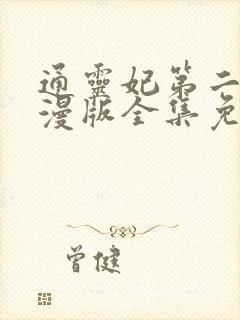 通靈妃第二
漫版全集免
曾健